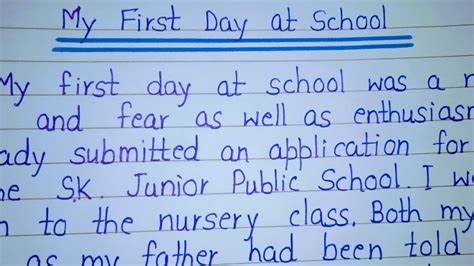 My First Day at School
My first day at school was a
and fear as well as enthusiasm
ady submitted an application for
he S.K. Junior Public School. I w
n to the nursery class. Both my
as my father had been told